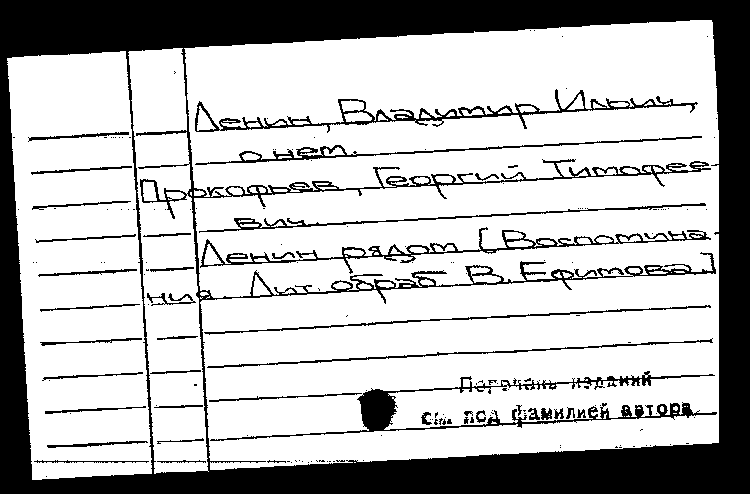 Ленин, Владимир Ильич,
о нем.
Прокофьев, Георгий Тимофее
вич.
Ленин рядом [Воспомина-
ния. Лит. обраб В. Ефимова.]
Перечень изданий
см. под фамилией автора